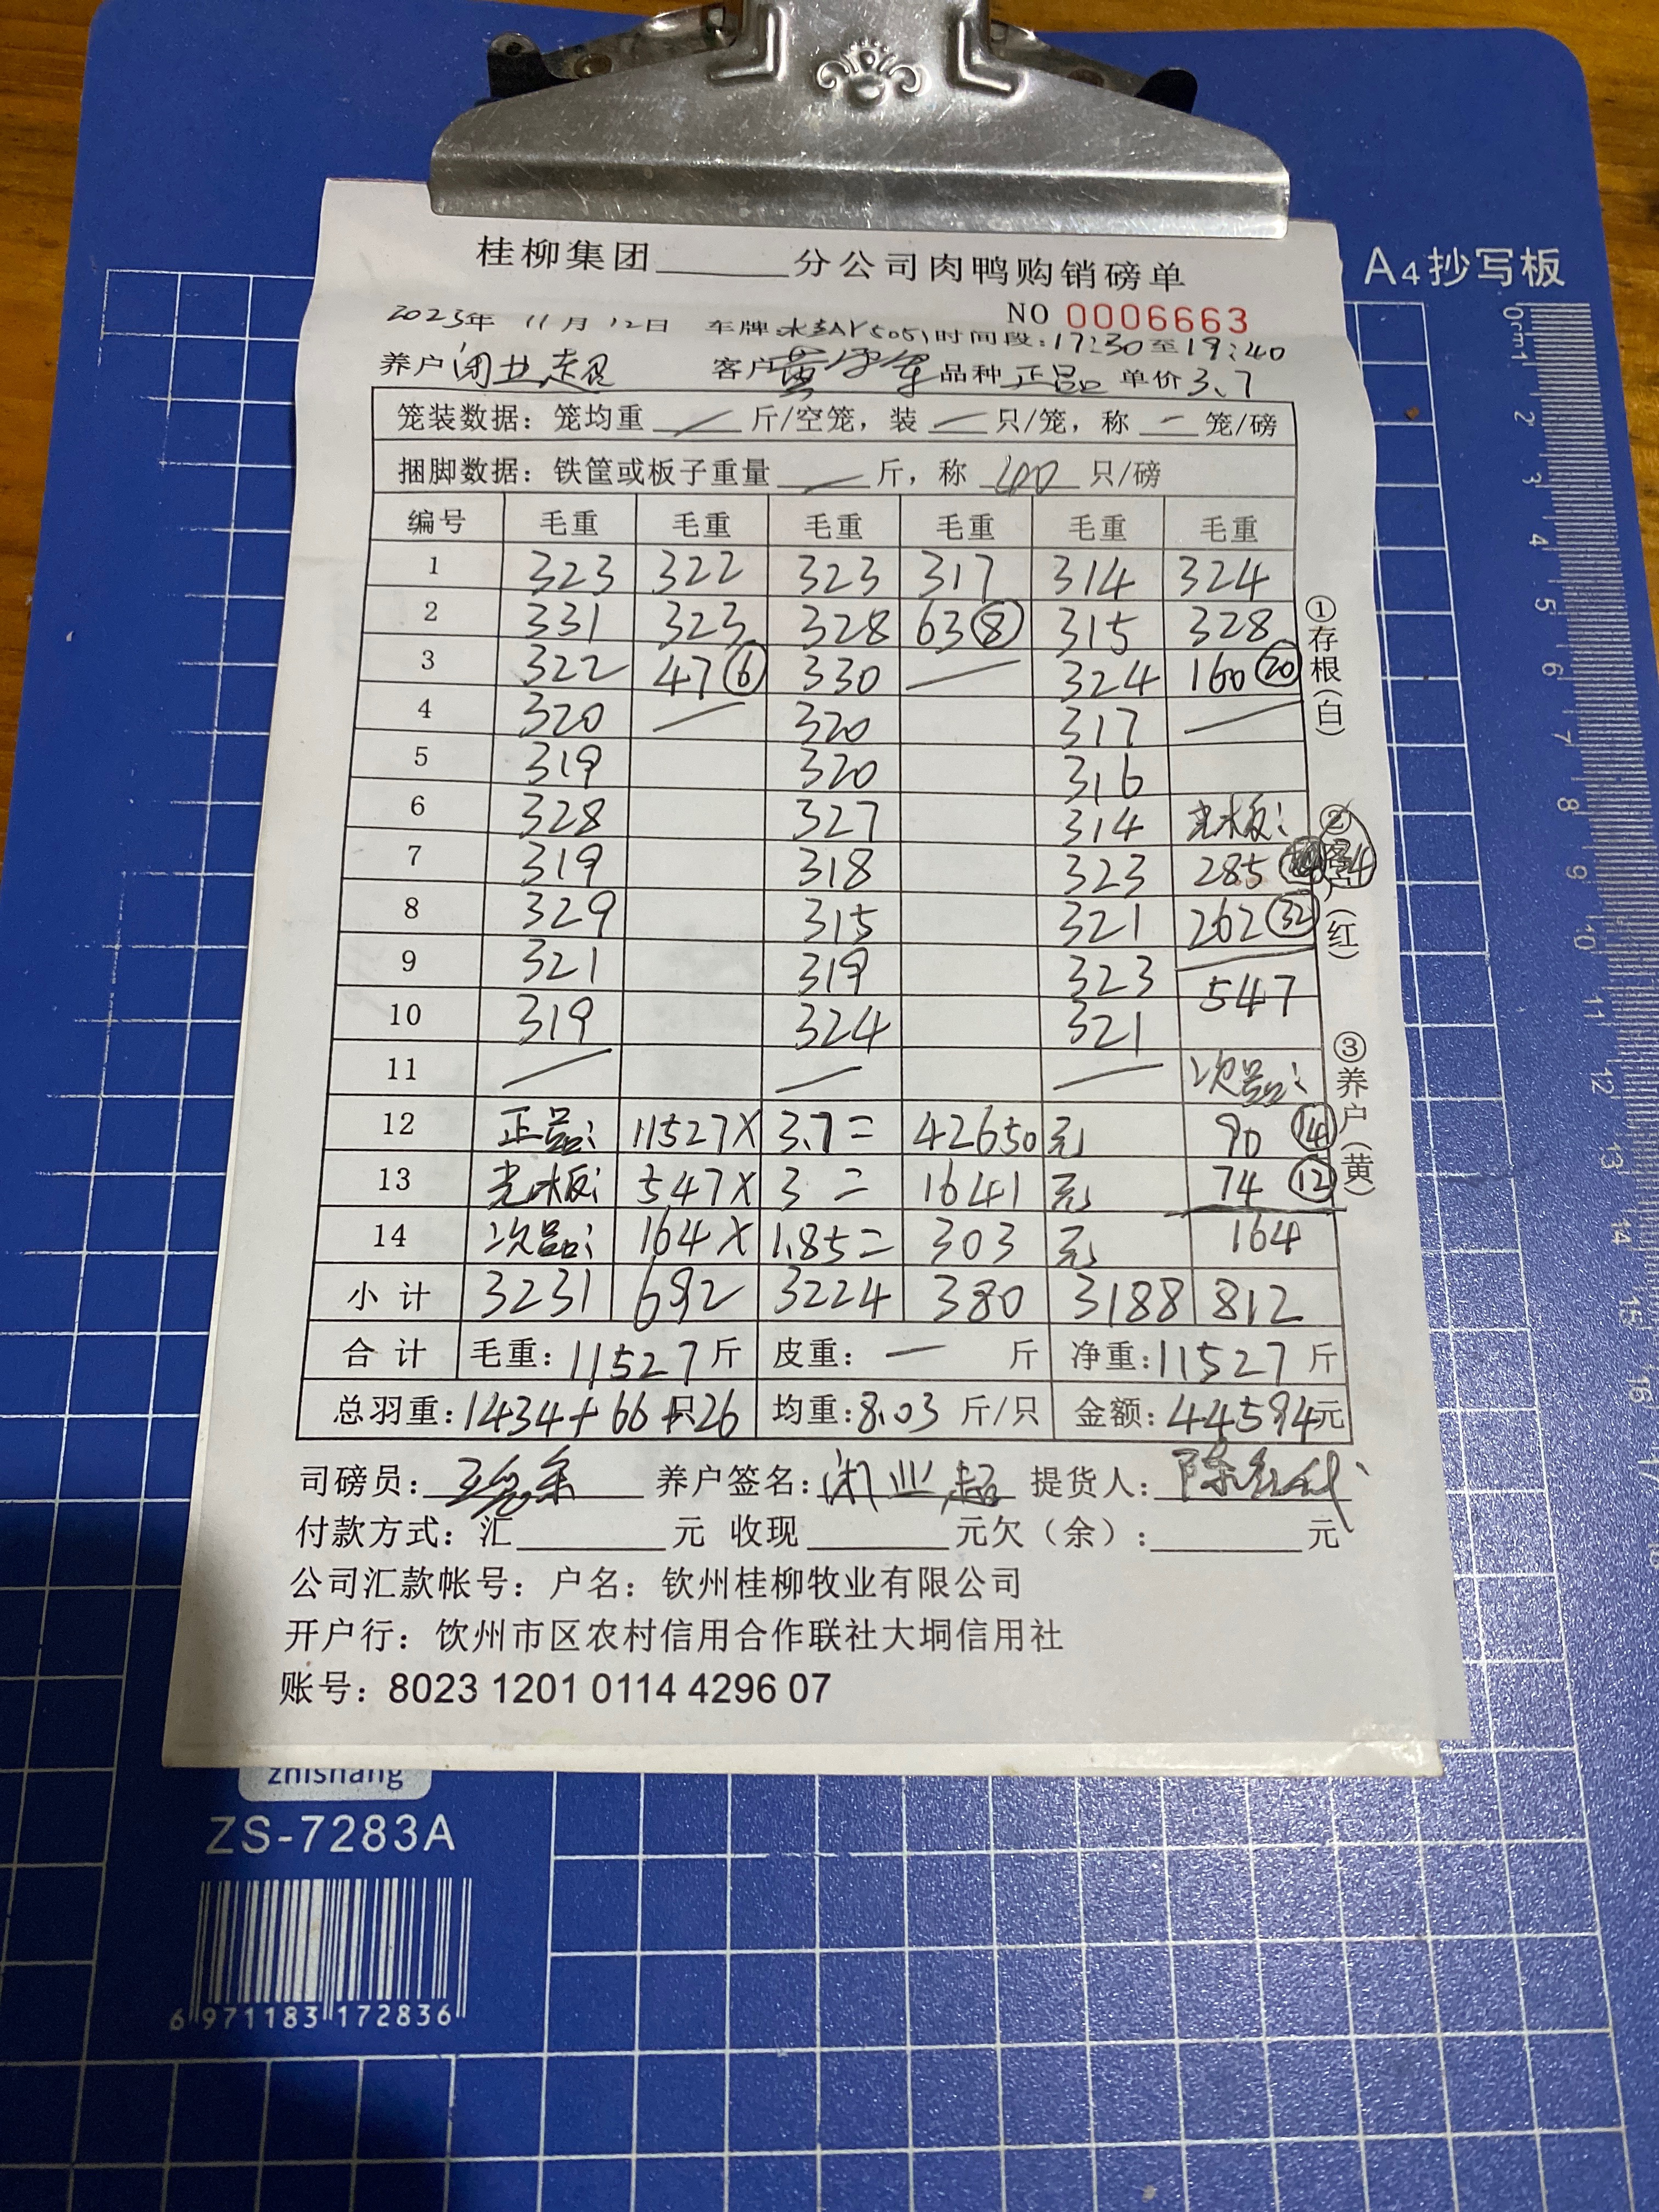 A4抄写板
桂柳集团______分公司肉鸭购销磅单
NO 0006663
2023年 11月12日 车牌 时间段:17:30至19:40
养户 闭业超 客户 黄 品种 正品 单价 3.7
笼装数据：笼均重 — 斤/空笼，装 — 只/笼，称 — 笼/磅
捆脚数据：铁筐或板子重量 — 斤，称 40 只/磅
编号 毛重 毛重 毛重 毛重 毛重 毛重
1 323 322 323 317 314 324
2 331 323 328 63⑧ 315 328
3 322 47⑥ 330 — 324 160⑳
4 320 — 320 317 —
5 319 320 316
6 328 327 314 光板:
7 319 318 323 285
8 329 315 321 262㉜
9 321 319 323 547
10 319 324 321
11 — — — 次品:
12 正品: 11527× 3.7= 42650 元 90⑭
13 光板: 547× 3= 1641 元 74⑫
14 次品: 164× 1.85= 303 元 164
小计 3231 692 3224 380 3188 812
合计 毛重：11527斤 皮重：— 斤 净重：11527斤
总羽重：1434+66+26只 均重：8.03 斤/只 金额：44594元
司磅员： 养户签名：闭业超 提货人：陈
付款方式：汇______元 收现______元欠（余）：______元
公司汇款帐号：户名：钦州桂柳牧业有限公司
开户行：饮州市区农村信用合作联社大垌信用社
账号：8023 1201 0114 4296 07
①存根(白)
②客户(红)
③养户(黄)
zhishang
ZS-7283A
6 971183 172836
0cm1 2 3 4 5 6 7 8 9 10 11 12 13 14 15 16 17 18